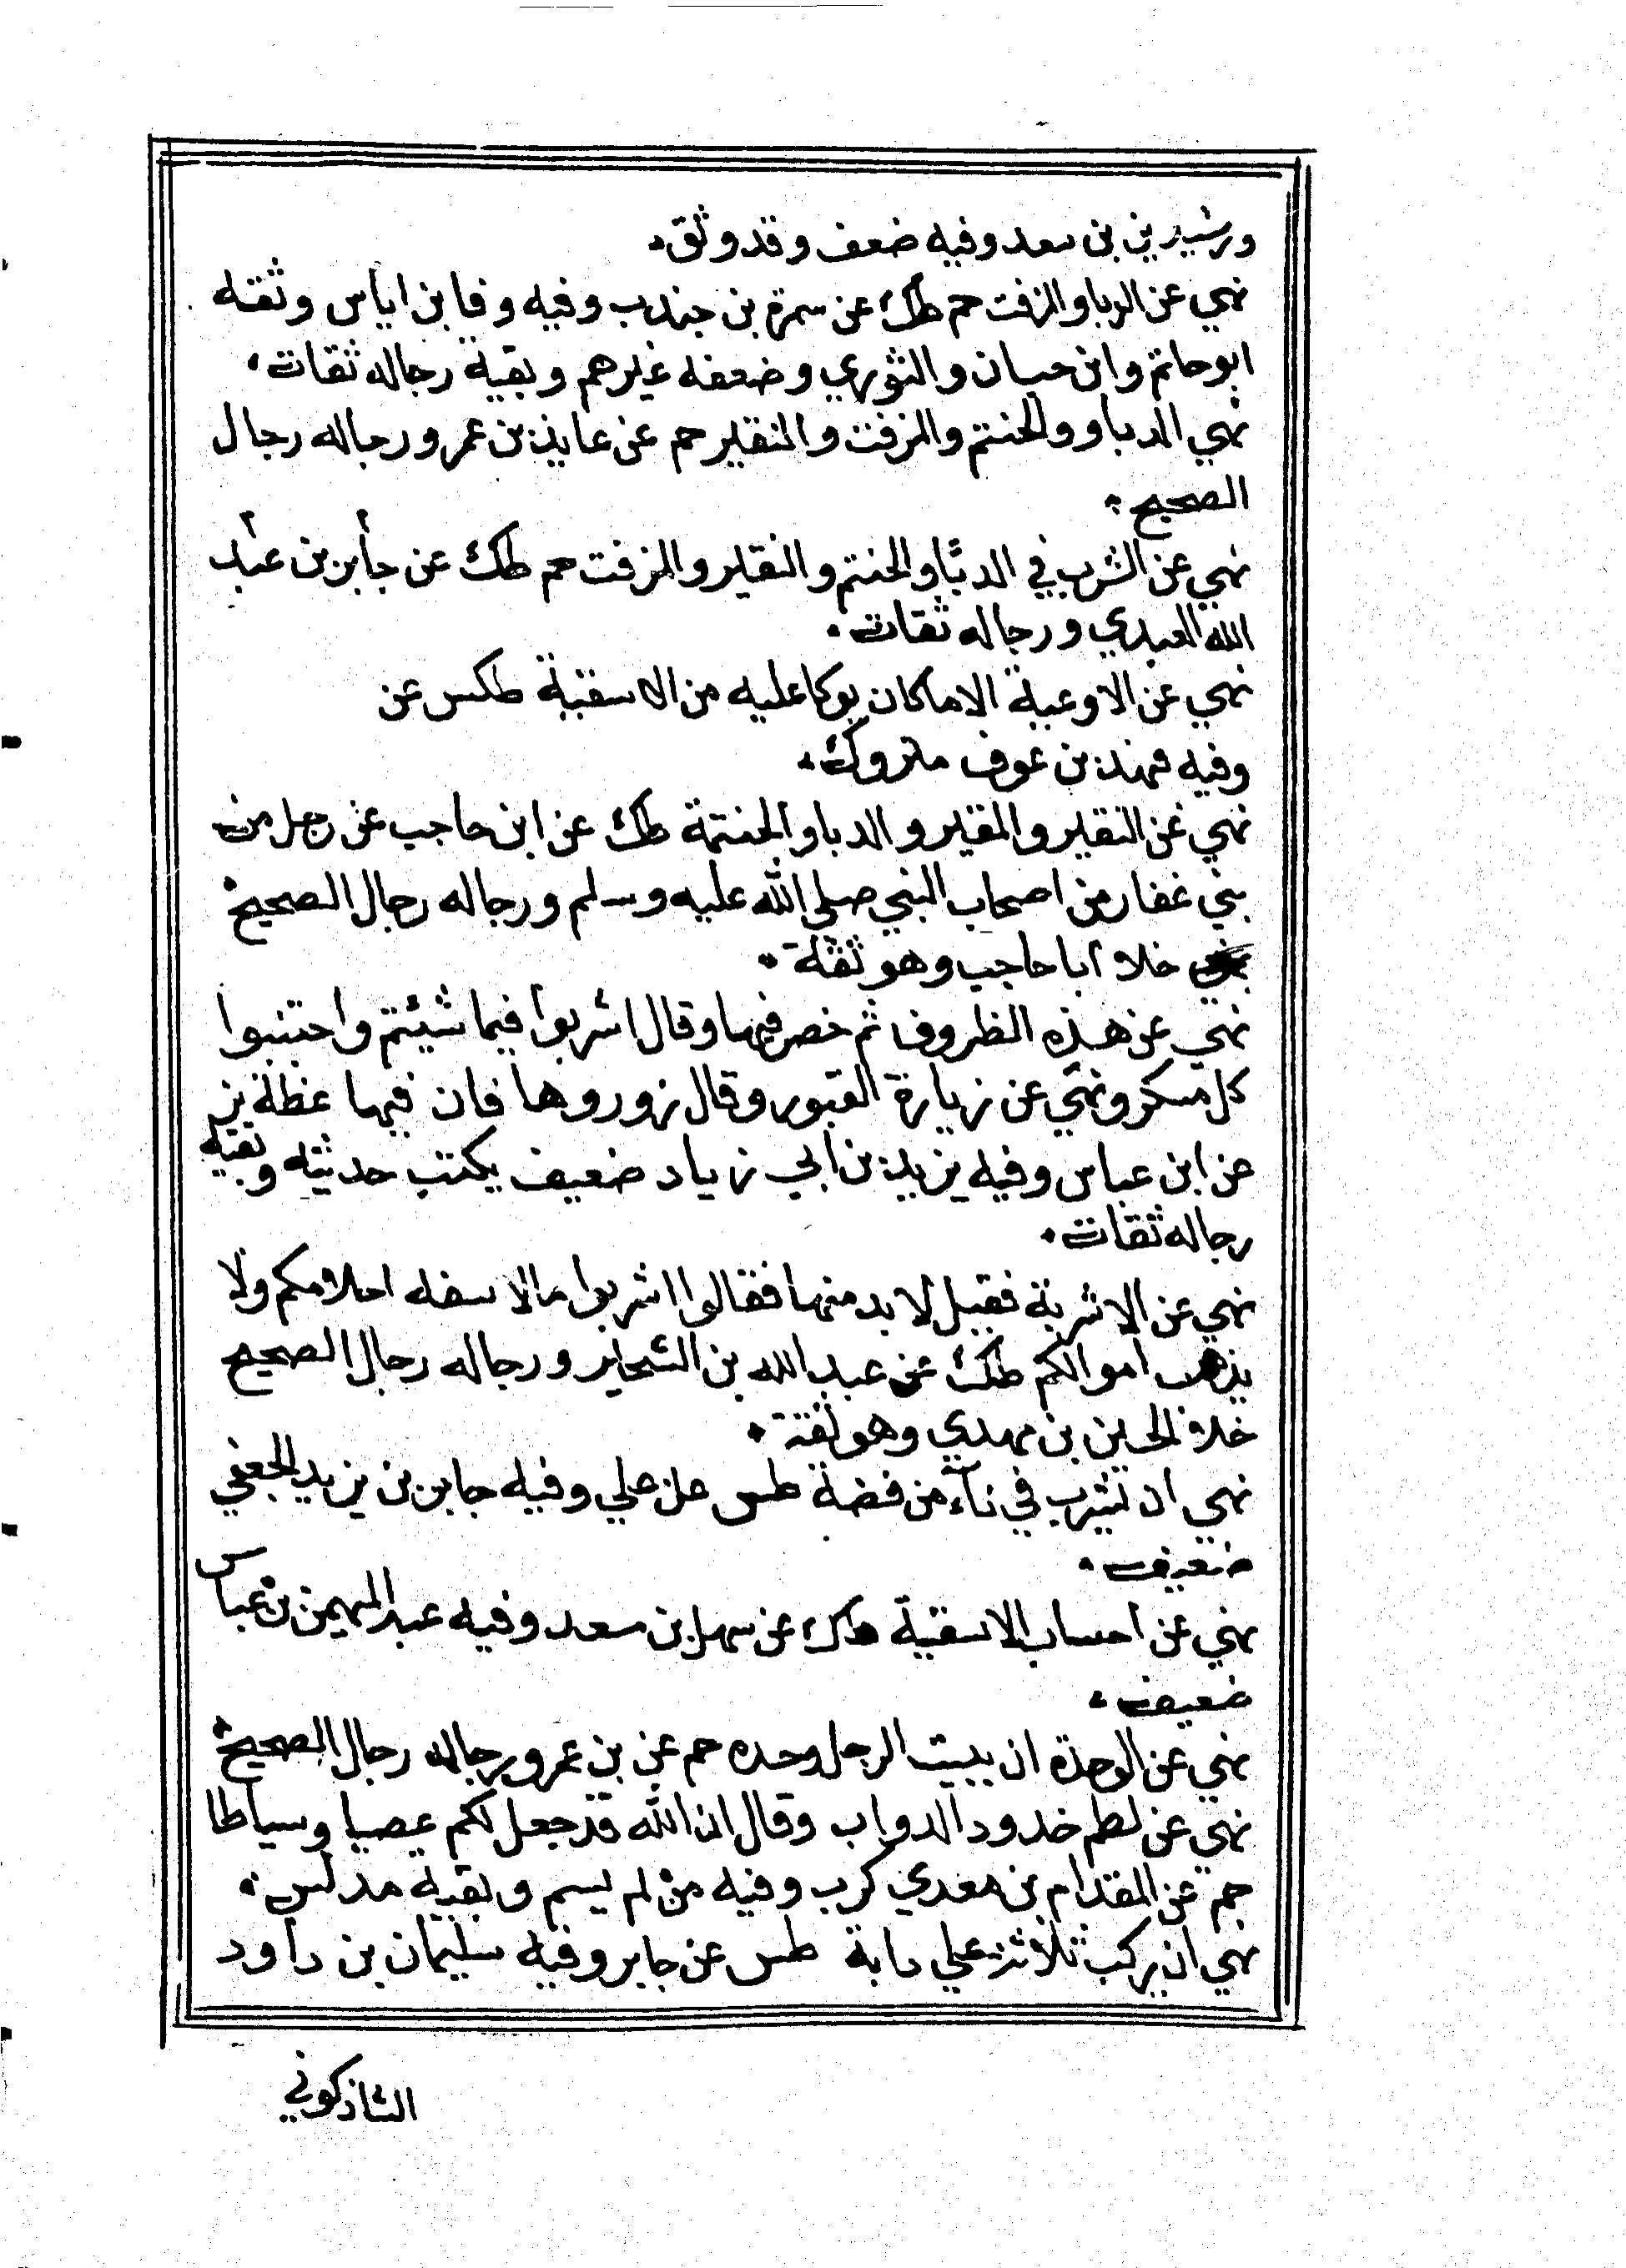 ورشدين بن سعد وفيه ضعف وقد وثق.
نهي عن الدبا والمزفت حم طك عن سمرة بن جندب وفيه وفا بن اياس وثقه
ابو حاتم وابن حبان والثوري وضعفه غيرهم وبقية رجاله ثقات.
نهي الدبا و والحنتم والمزفت والنقير حم عن عايذ بن عمرو رجاله رجال
الصحيح.
نهي عن الشرب في الدبّا والحنتم والنقير والمزفت حم طك عن جابر بن عبد
الله العبدي ورجاله ثقات.
نهي عن الاوعية الا ماكان يوكا عليه من الاسقية طكس عن
وفيه فهد بن عوف متروك.
نهي عن النقير والمقير والدبا والحنتمة طك عن ابن حاجب عن رجل من
بني غفار من اصحاب النبي صلى الله عليه وسلم ورجاله رجال الصحيح
خلا ابا حاجب وهو ثقة.
نهي عن هذه الظروف ثم خصر فيها وقال اشربوا فيما شيئتم واجتنبوا
كل مسكر ونهي عن زيارة القبور وقال زوروها فان فيها عظة بز
عن ابن عباس وفيه يزيد بن ابي زياد ضعيف يكتب حديثه وبقية
رجاله ثقات.
نهي عن الاشربة فقيل لا بد منها فقالوا اشربوا مالا سفه احلامكم ولا
يذهب اموالكم طك عن عبد الله بن الشخير ورجاله رجال الصحيح
خلا الحسين بن مهدي وهو ثقة.
نهي ان نشرب في نآء من فضة طس عن علي وفيه جابر بن يزيد الجعفي
ضعيف.
نهي عن احساب الاسقية طك عن سهل بن سعد وفيه عبد المهيمن بن عباس
ضعيف.
نهي عن الوحدة ان يبيت الرجل وحده حم عن بن عمر ورجاله رجال الصحيح
نهي عن لطم خدود الدواب وقال ان الله قد جعل لكم عصيا وسياطا
حم عن المقدام بن معدي كرب وفيه من لم يسم وبقية مدلس.
نهي ان يركب ثلاثة علي دابة طس عن جابر وفيه سليمان بن داود
الشاذكوني